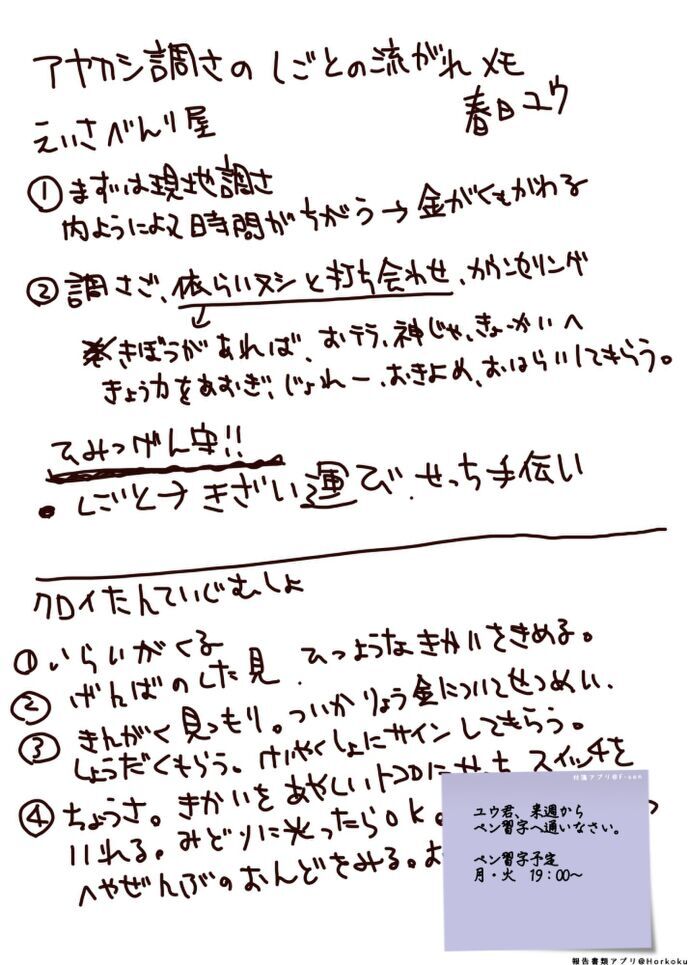 アヤカシ調さの しごとの流がれ メモ
春日ユウ
えいさべんり屋
① まずは現地調さ
内ようによって時間がちがう→金がくもかわる
② 調さご、依らいヌシと打ち合わせ、カウンセリング
※きぼうがあれば、おテラ、神じゃ、きょーかいへ
きょう力をあおぎ、じょれー、おきよめ、おはらいしてもらう。
ひみつげん守!!
・しごと→きざい運び、せっち手伝い
クロイたんていじむしょ
① いらいがくる
② げんばのした見 ひつようなきかいをきめる。
③ きんがく見つもり。ついかりょう金についてせつめい、
しょうだくもらう。けいやくしょにサインしてもらう。
④ ちょうさ。きかいをあやしいトコロにせっち スイッチを
いれる。みどりに光ったらok。
へやぜんぶのおんどをみる。
付箋アプリ@F-sen
ユウ君、来週から
ペン習字へ通いなさい。
ペン習字予定
月・火 19:00～
報告書類アプリ@Horkoku